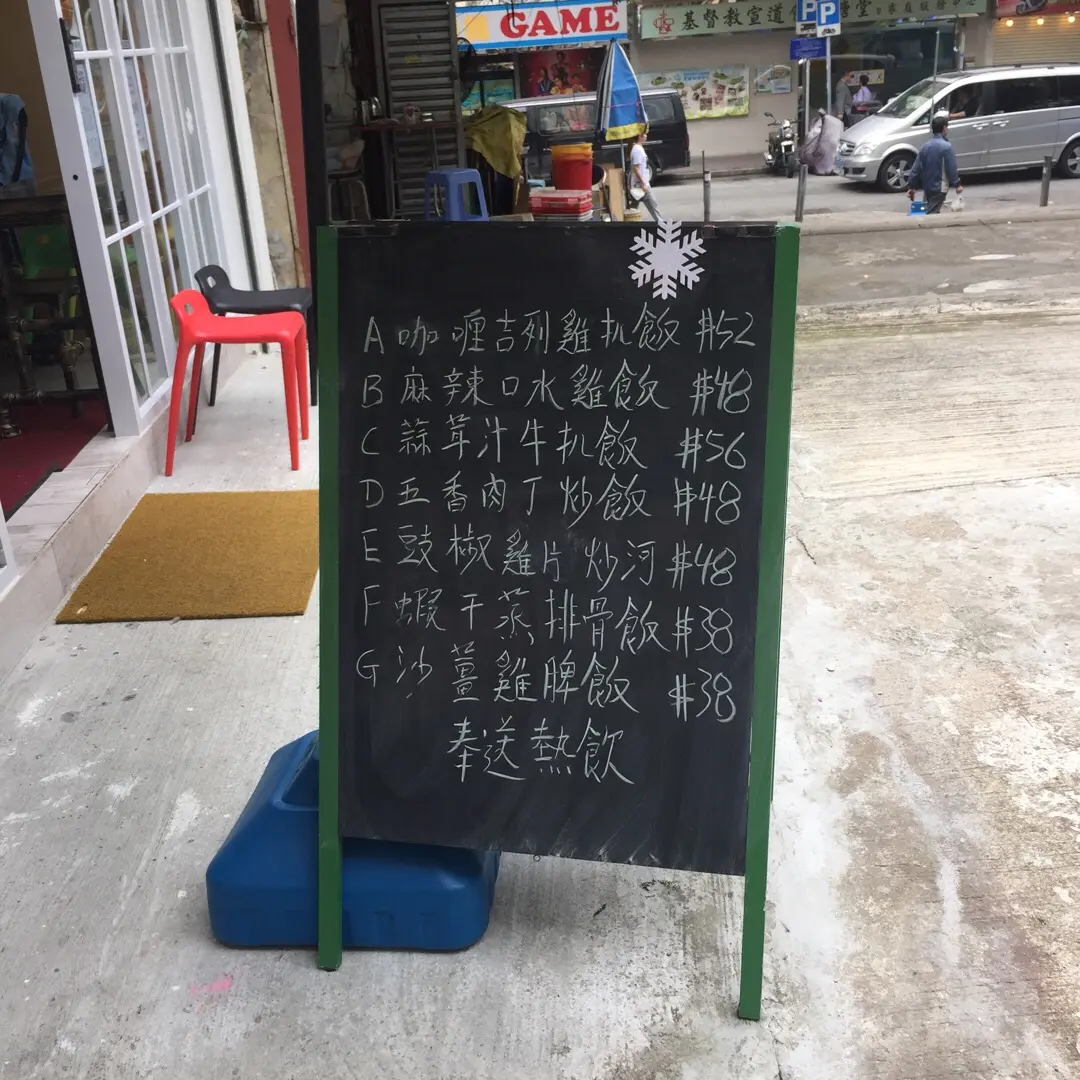 GAME
基督教宣道
P P
A 咖喱吉列雞扒飯 $52
B 麻辣口水雞飯 $48
C 蒜茸汁牛扒飯 $56
D 五香肉丁炒飯 $48
E 豉椒雞片炒河 $48
F 蝦干蒸排骨飯 $38
G 沙薑雞脾飯 $38
奉送熱飲